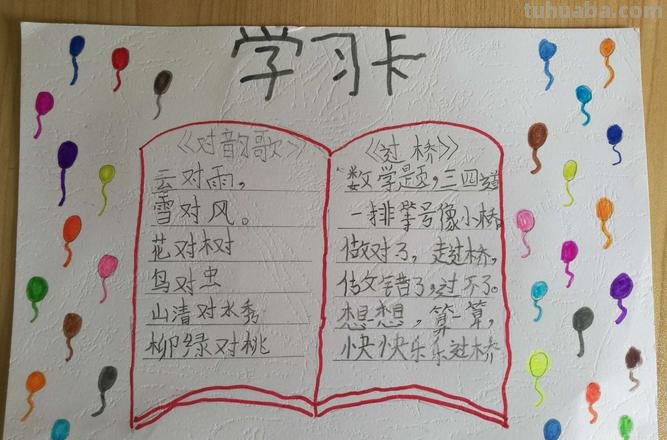 tuhuaba.com
学习卡
《对韵歌》
云对雨,
雪对风。
花对树
鸟对虫
山清对水秀
柳绿对桃
《过桥》
数学题,三四道
一排等号像小桥
做对了,走过桥,
做错了,过不了。
想想,算算,
快快乐乐过桥